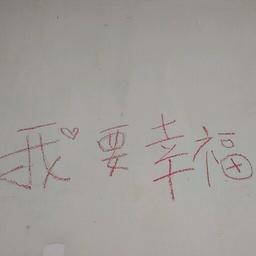 我要幸福